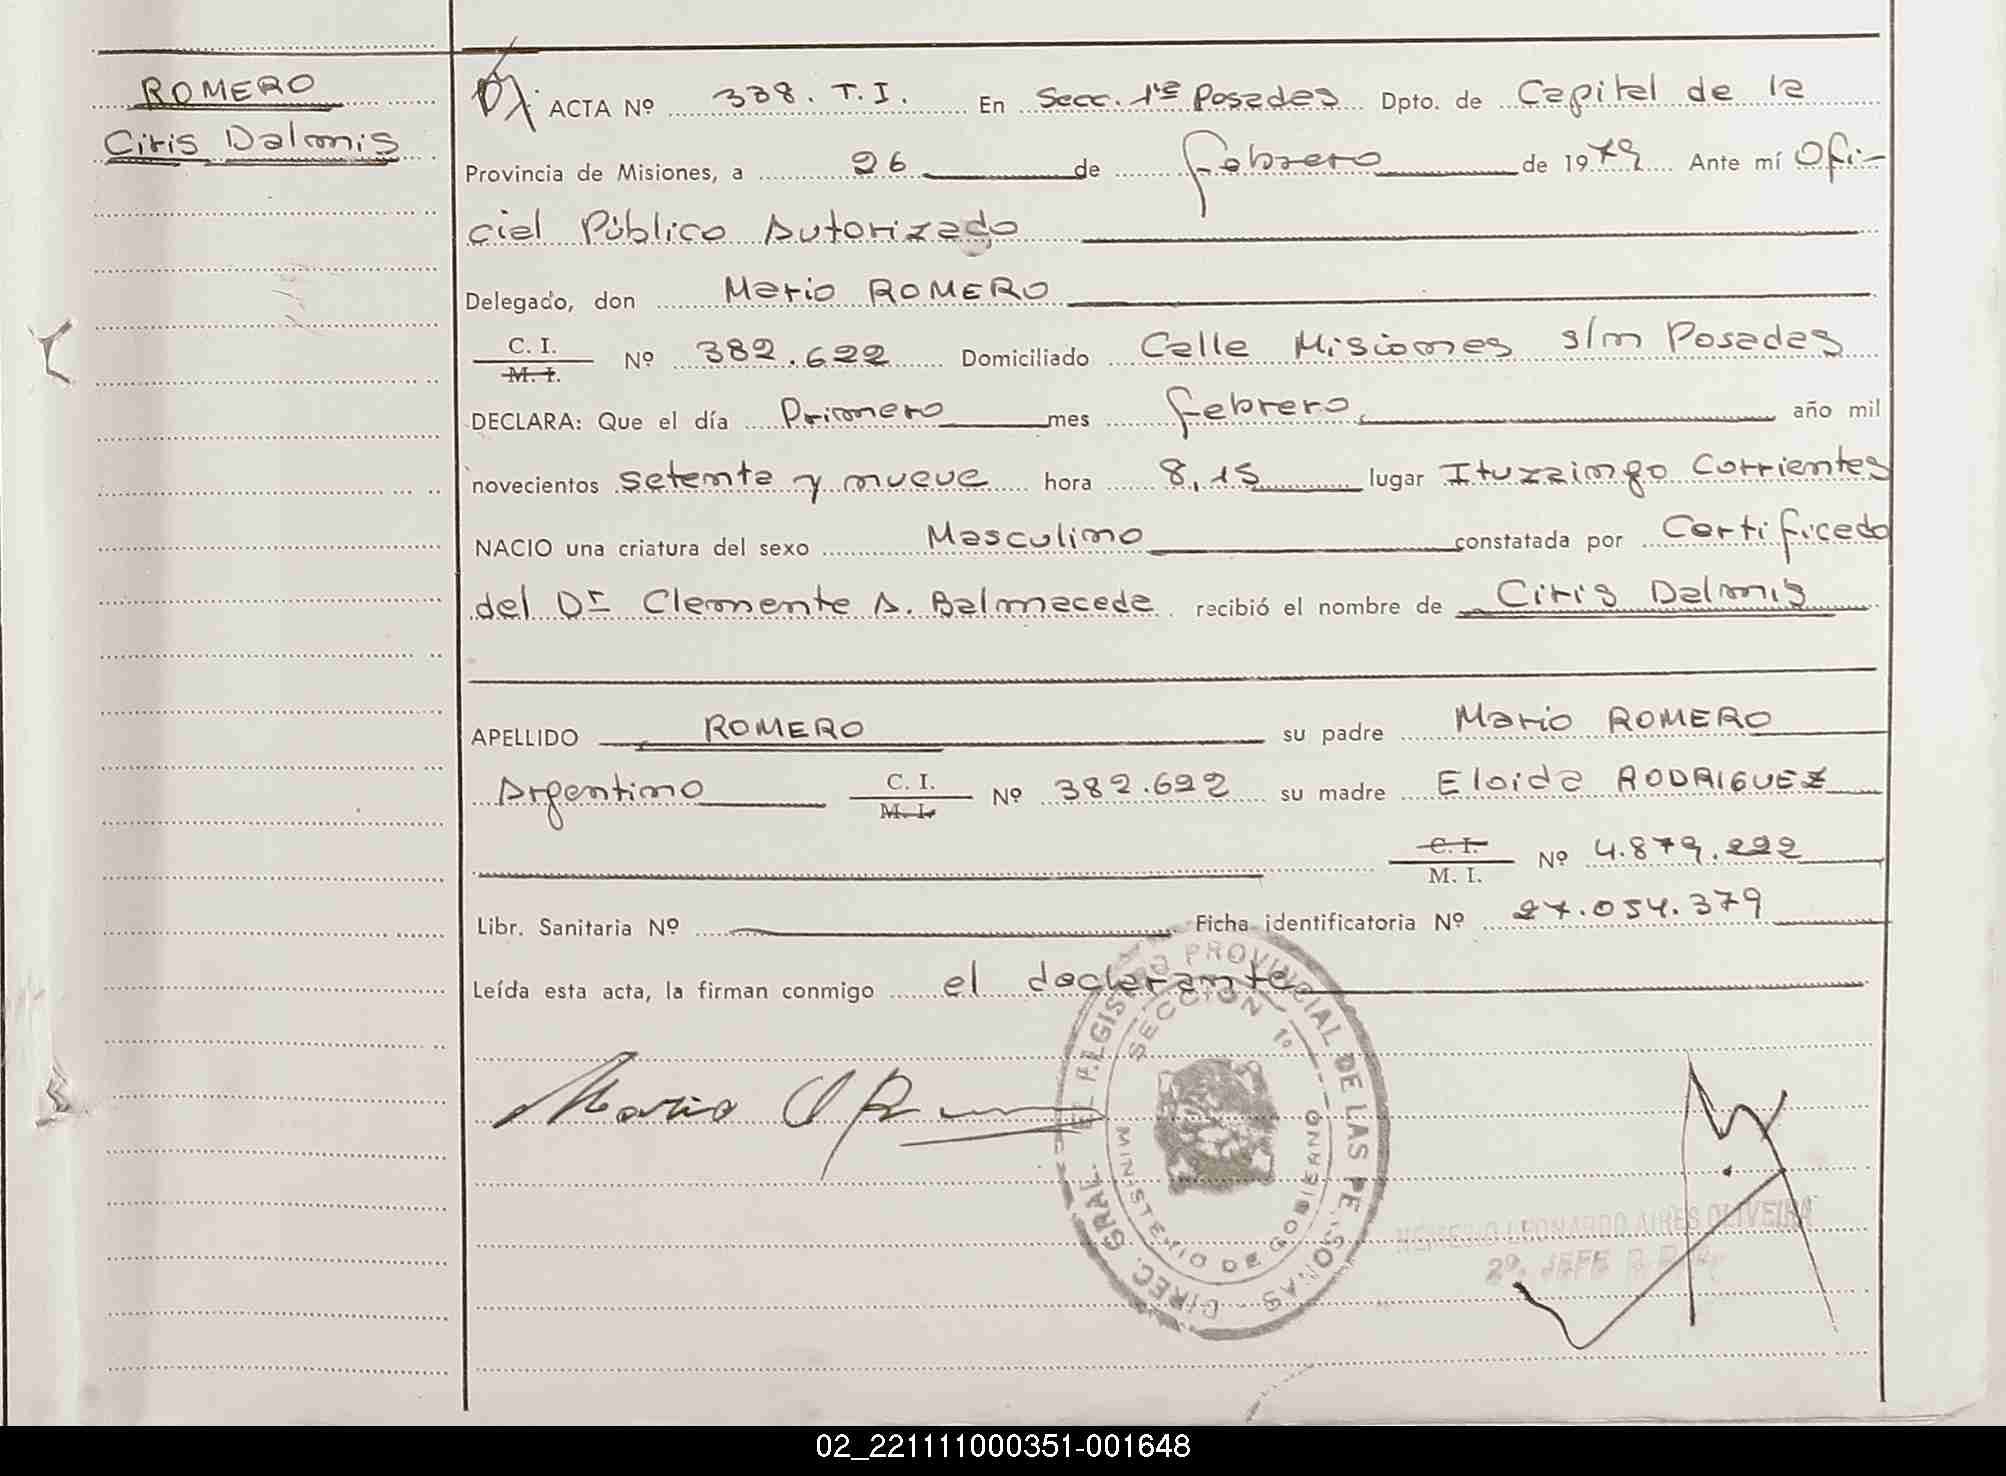 ROMERO
Ciris Dalmis
ACTA Nº 338. T.I. En Secc. 1ª Posadas Dpto. de Capital de la
Provincia de Misiones, a 26 de febrero de 1979 Ante mí Ofi-
cial Público Autorizado
Delegado, don Mario ROMERO
C. I.
M. I. Nº 382.622 Domiciliado Calle Misiones s/n Posadas
DECLARA: Que el día Primero mes febrero año mil
novecientos setenta y nueve hora 8,15 lugar Ituzaingo Corrientes
NACIO una criatura del sexo Masculino constatada por Certificado
del Dr Clemente A. Balmaceda recibió el nombre de Ciris Dalmis
APELLIDO ROMERO su padre Mario ROMERO
Argentino C. I.
M. I. Nº 382.622 su madre Eloida RODRIGUEZ
C. I.
M. I. Nº 4.879.222
Libr. Sanitaria Nº Ficha identificatoria Nº 27.054.379
Leída esta acta, la firman conmigo el declarante
DIREC. GRAL. DEL REGISTRO PROVINCIAL DE LAS PERSONAS
SECCION 1º
MINISTERIO DE GOBIERNO
Mario
NEMESIO LEONARDO AIRES OLIVEIRA
2º. JEFE
02_221111000351-001648